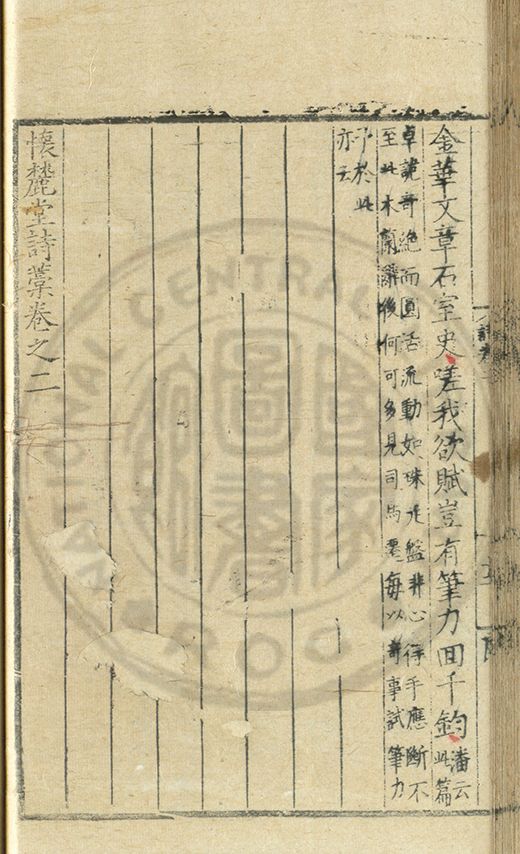 金華文章石室史嗟我欲賦豈有筆力回千鈞潘云此篇
卓詭奇絶而圓活流動如珠走盤非心得手應斷不
至此木蘭辭後何可多見司馬遷每以奇事試筆力
予於此
亦云
懷麓堂詩藁卷之二